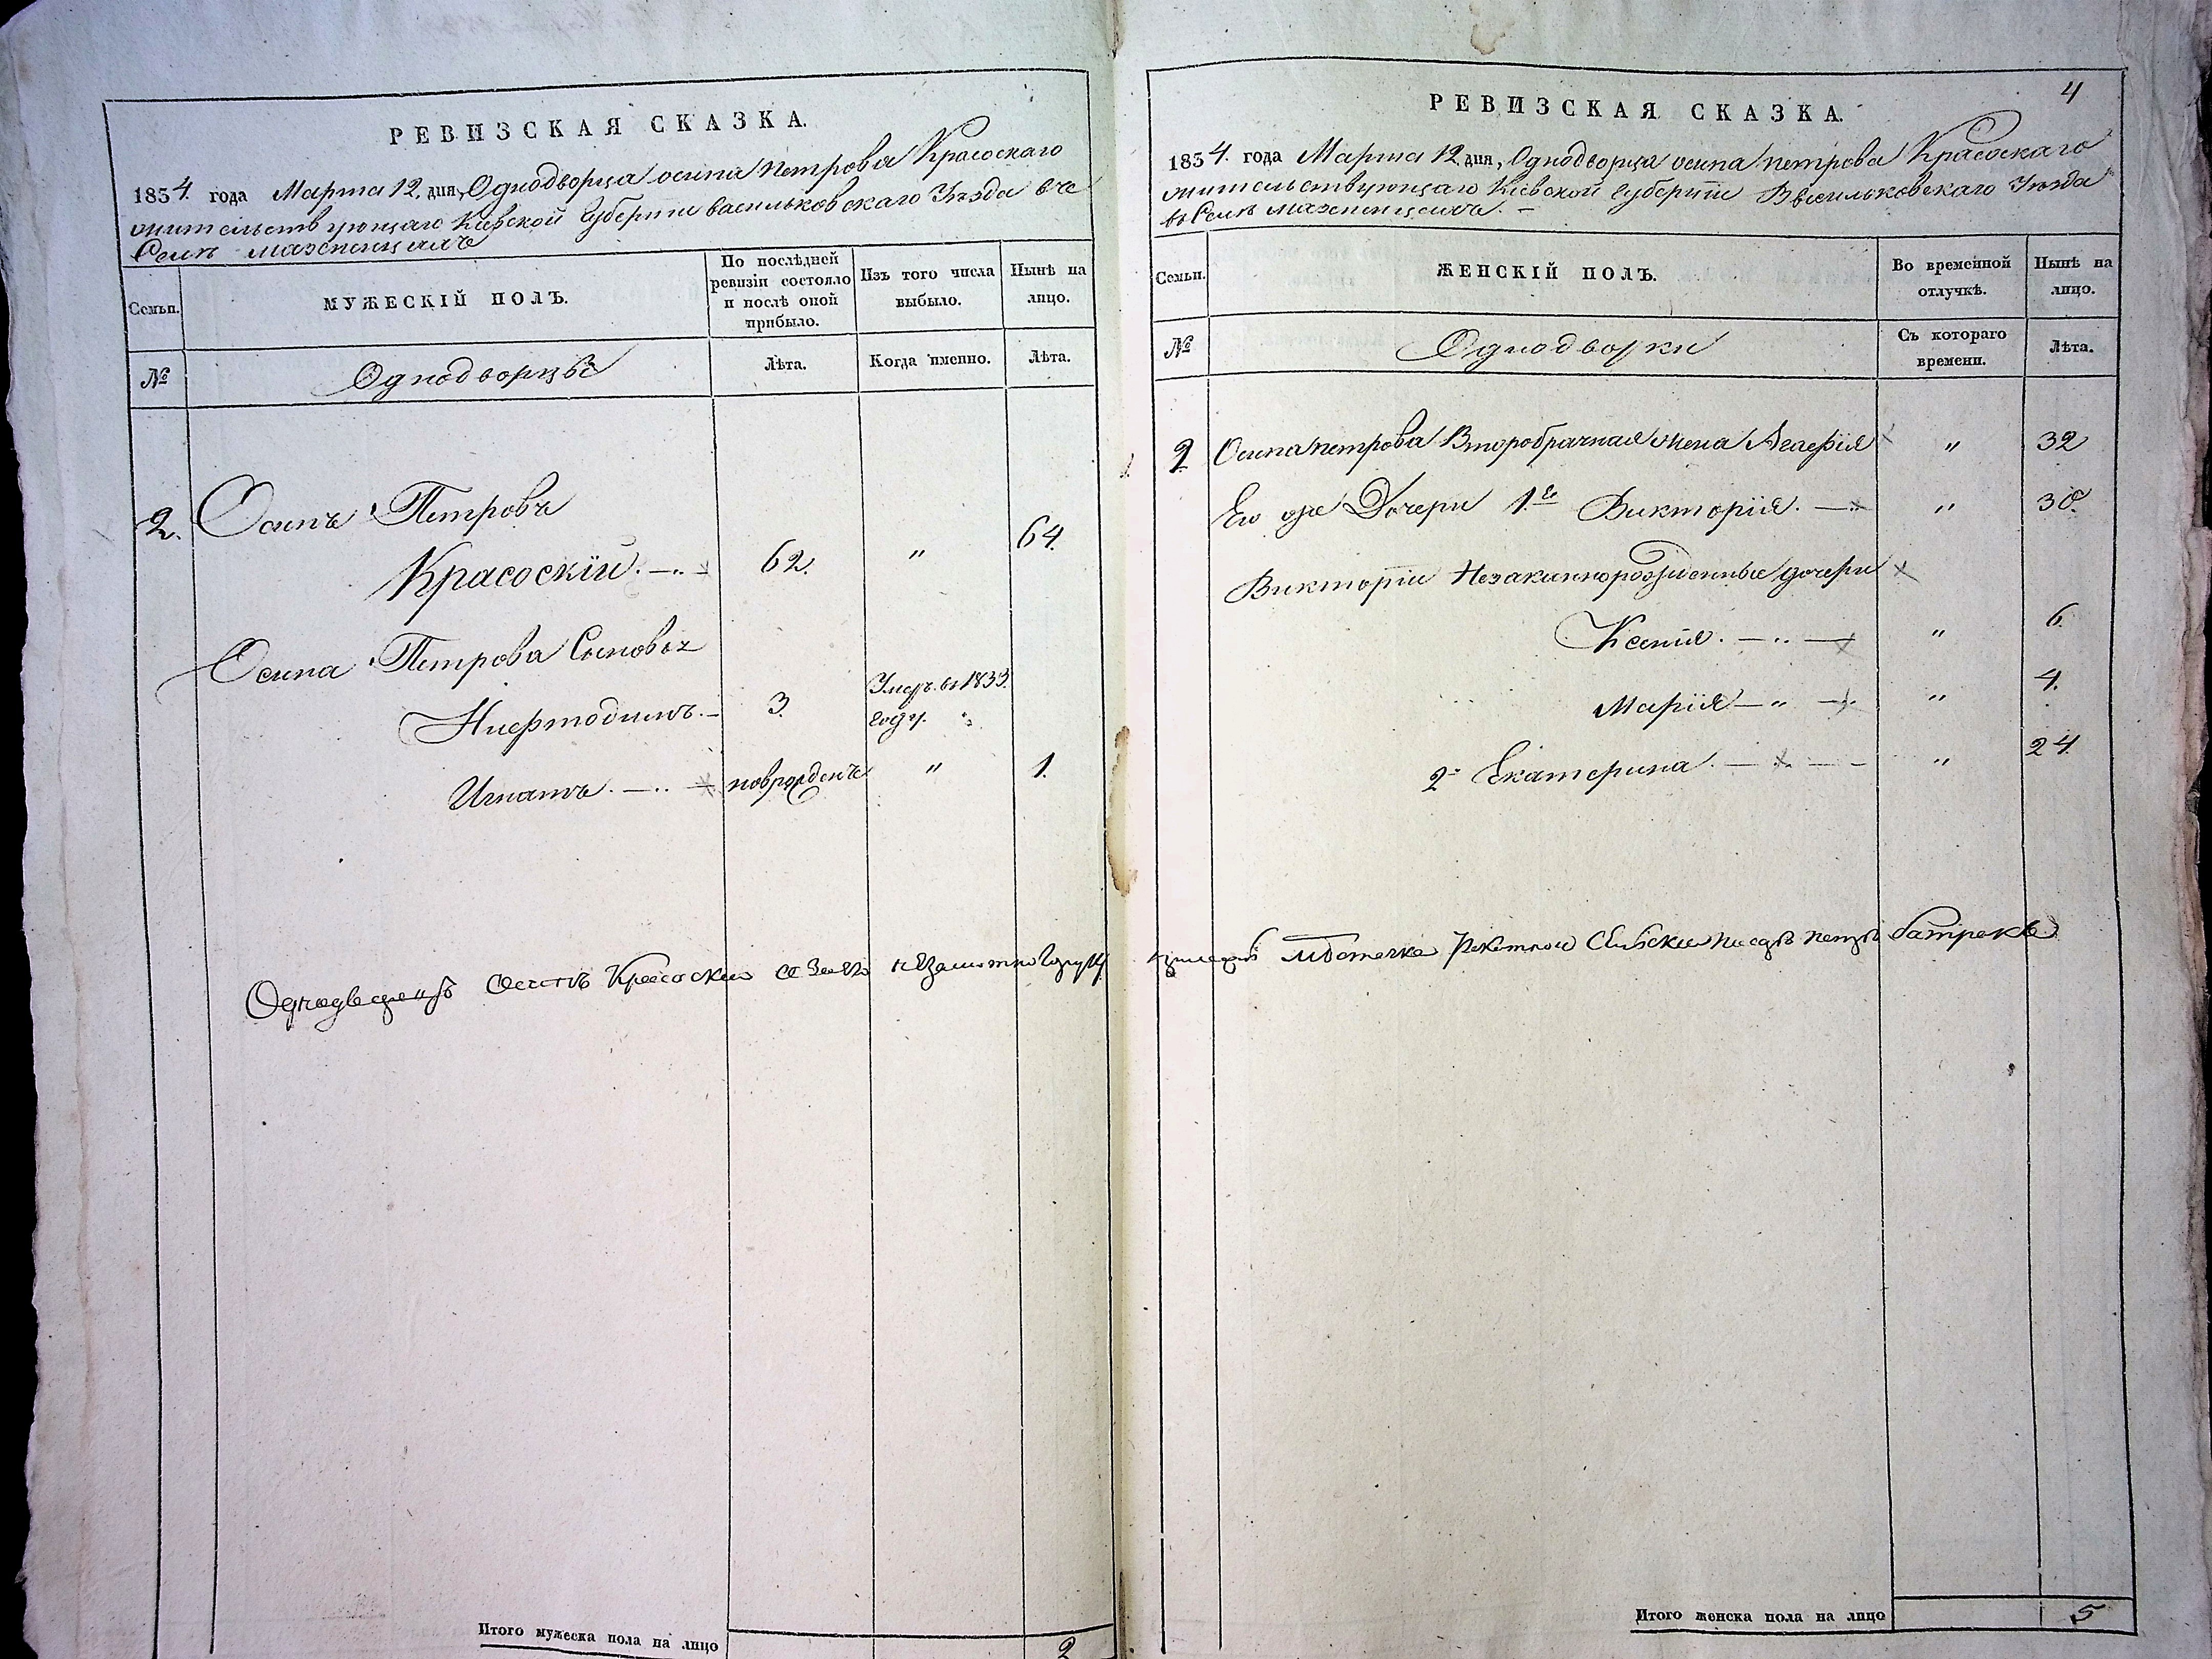 РЕВИЗСКАЯ СКАЗКА.
1854. года Марта 12. дня, Однодворца осипа петрова Красоскаго
жительствующаго Кіевской губерніи васильковскаго Уѣзда въ
Селѣ
Семьи.
МУЖЕСКІЙ ПОЛЪ.
По послѣдней ревизіи состояло и послѣ оной прибыло.
Изъ того числа выбыло.
Нынѣ на лицо.
№
Однодворцы
Лѣта.
Когда именно.
Лѣта.
2. Осипъ Петровъ
Красоскій. 62. " 64.
Осипа Петрова Сыновья
3. Умеръ въ 1833.
году.
Игнатъ. новорожденъ " 1.
Однодворецъ Осипъ Красоскій
Итого мужеска пола на лицо 2
4
РЕВИЗСКАЯ СКАЗКА.
1854. года Марта 12. дня, Однодворца осипа петрова Красоскаго
жительствующаго Кіевской губерніи Васильковскаго Уѣзда
въ Селѣ
Семьи.
ЖЕНСКІЙ ПОЛЪ.
Во временной отлучкѣ.
Нынѣ на лицо.
№
Однодворки
Съ котораго времени.
Лѣта.
2 Осипа петрова Второбрачная жена Агафія " 32
Его же Дочери 1.я Викторія. " 30.
Викторіи Незаконнорожденные дочери
Ксенія. " 6.
Марія " 4.
2я Екатерина. " 24.
Итого женска пола на лицо 5